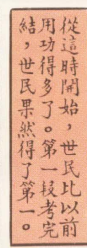 從這時開始，世民比以前
用功得多了。第一段考完
結，世民果然得了第一。